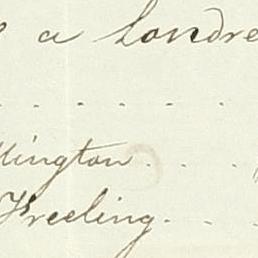 a Londre
. . . . . .
llington . . .
Freeling . . .